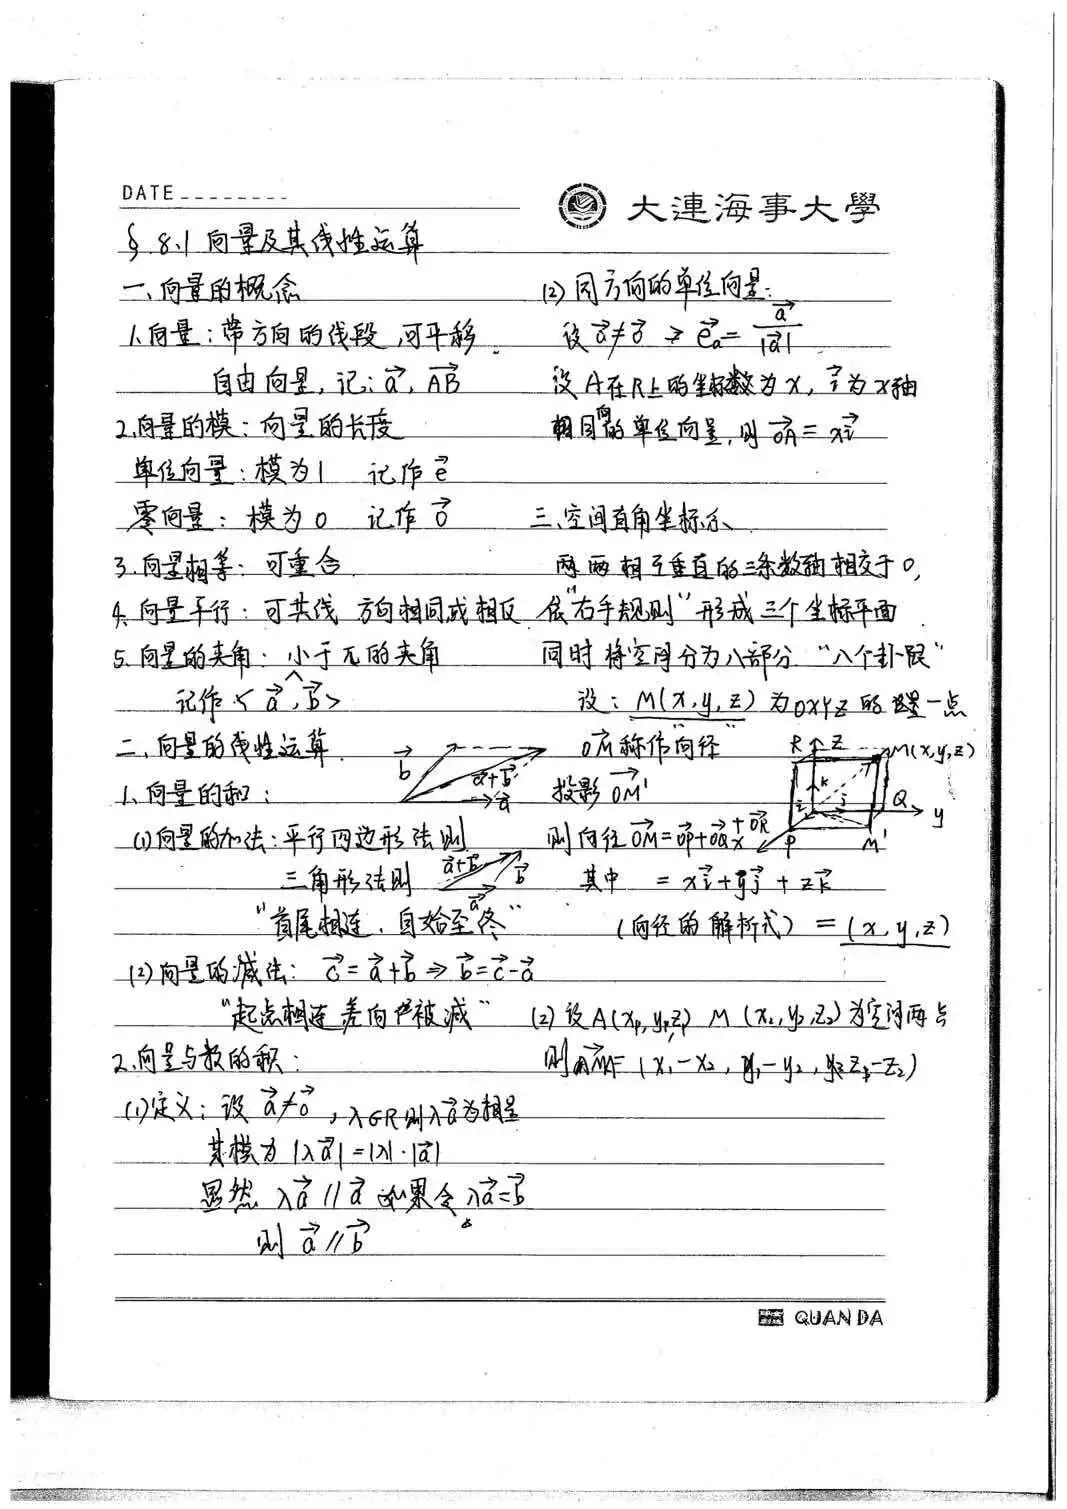 DATE
大連海事大學
§8.1 向量及其线性运算
一、向量的概念
1、向量：带方向的线段，可平移.
自由向量，记：a⃗, AB⃗
2、向量的模：向量的长度
单位向量：模为1 记作 e⃗
零向量：模为0 记作 0⃗
3、向量相等：可重合
4、向量平行：可共线 方向相同或相反
5、向量的夹角：小于π的夹角
记作<a⃗^,b⃗>
二、向量的线性运算
b⃗ a⃗+b⃗ a⃗
1、向量的和：
(1)向量的加法：平行四边形法则
三角形法则 a⃗+b⃗ b⃗ a⃗
“首尾相连，自始至终”
(2)向量的减法：c⃗=a⃗+b⃗⇒b⃗=c⃗-a⃗
“起点相连 差向 被减”
2、向量与数的积：
(1)定义：设 a⃗≠0⃗, λ∈R则λa⃗为相量
其模为|λa⃗|=|λ|·|a⃗|
显然 λa⃗∥a⃗ 如果令 λa⃗=b⃗
则 a⃗∥b⃗
(2)同方向的单位向量：
设a⃗≠0⃗ ⇒ e⃗a= a⃗/|a⃗|
设A在R上的坐标数为x，i⃗为x轴
相同向的单位向量，则OA⃗=xi⃗
三、空间直角坐标系
两两相互垂直的三条数轴相交于0，
依“右手规则”形成三个坐标平面
同时将空间分为八部分 “八个卦限”
设：M(x,y,z)为OXYZ的 一点
OM⃗称作“向径”
投影OM⃗'
则向径OM⃗=OP⃗+OQ⃗+OR⃗
其中 =xi⃗+yj⃗+zk⃗
(向径的解析式) =(x,y,z)
R Z M(x,y,z)
k
i j Q y
x P M'
(2)设A(x₁,y₁,z₁) M(x₂,y₂,z₂)为空间两点
则MA⃗=(x₁-x₂, y₁-y₂, z₁-z₂)
QUANDA